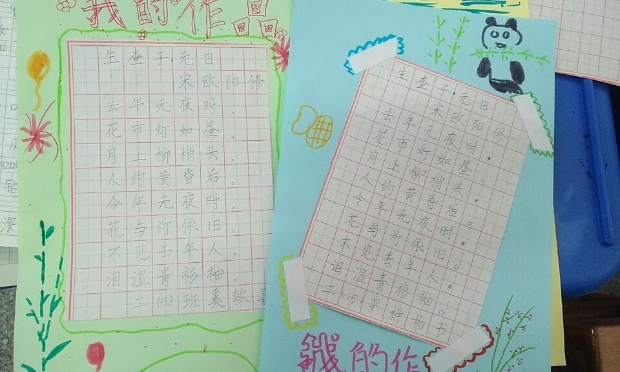 我的作品
生查子·元日
宋 欧阳修
去年元夜时,
花市灯如昼。
月上柳梢头,
人约黄昏后。
今年元夜时,
花与灯依旧。
不见去年人,
泪湿青衫袖。
二(四)班奚敏
生查子·元日
宋欧阳修
去年元夜时,
花市灯如昼。
月上柳梢头,
人约黄昏后。
今年元夜时,
花与灯依旧。
不见去年人,
泪湿青衫袖。
我的作